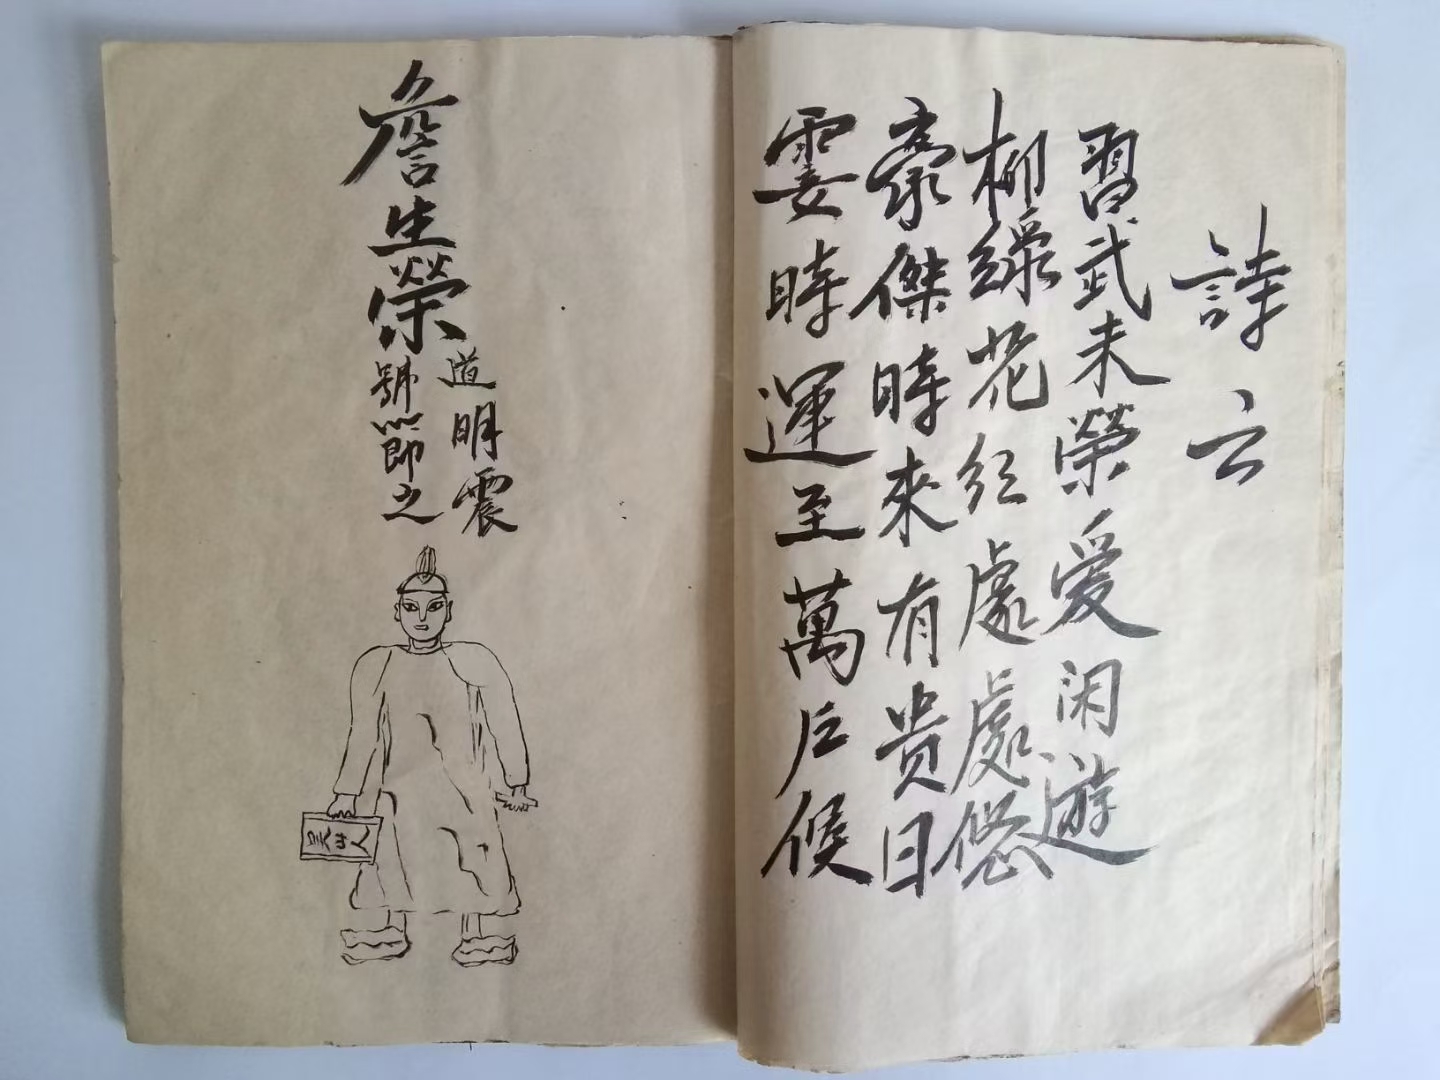 詩云
習武未榮爱闲遊
柳綠花红處處悠
豪傑時來有贵日
霎時運至萬户候
詹生榮
道明震
號節之